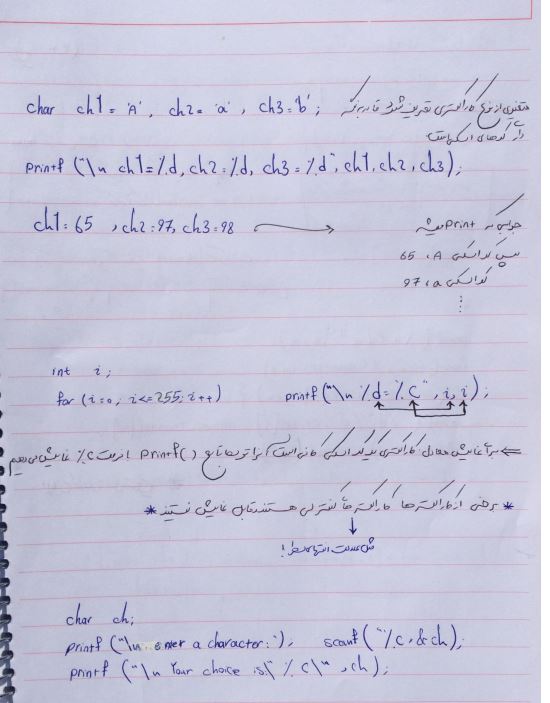 char ch1 = 'A', ch2 = 'a', ch3 = 'b';
متغیری از نوع کاراکتری تعریف شود
از کدهای اسکی است
printf ("\n ch1 = %d, ch2 = %d, ch3 = %d", ch1, ch2, ch3);
ch1 = 65 , ch2 = 97, ch3 = 98
جوابی که print میشه
پس کد اسکی A ، 65
کد اسکی a ، 97
int i;
for (i = 0; i <= 255; i++) printf ("\n %d = %c", i, i);
نمایش معادل کاراکتری یک کد اسکی کافی است آنرا توسط تابع printf() با فرمت %c نمایش می دهیم
* برخی از کاراکترها کاراکترهای کنترلی هستند قابل نمایش نیستند *
مثل علامت انتهای خط!
char ch;
printf ("\n enter a character: "); scanf ("%c, &ch);
printf ("\n Your choice is \" %c \" , ch);